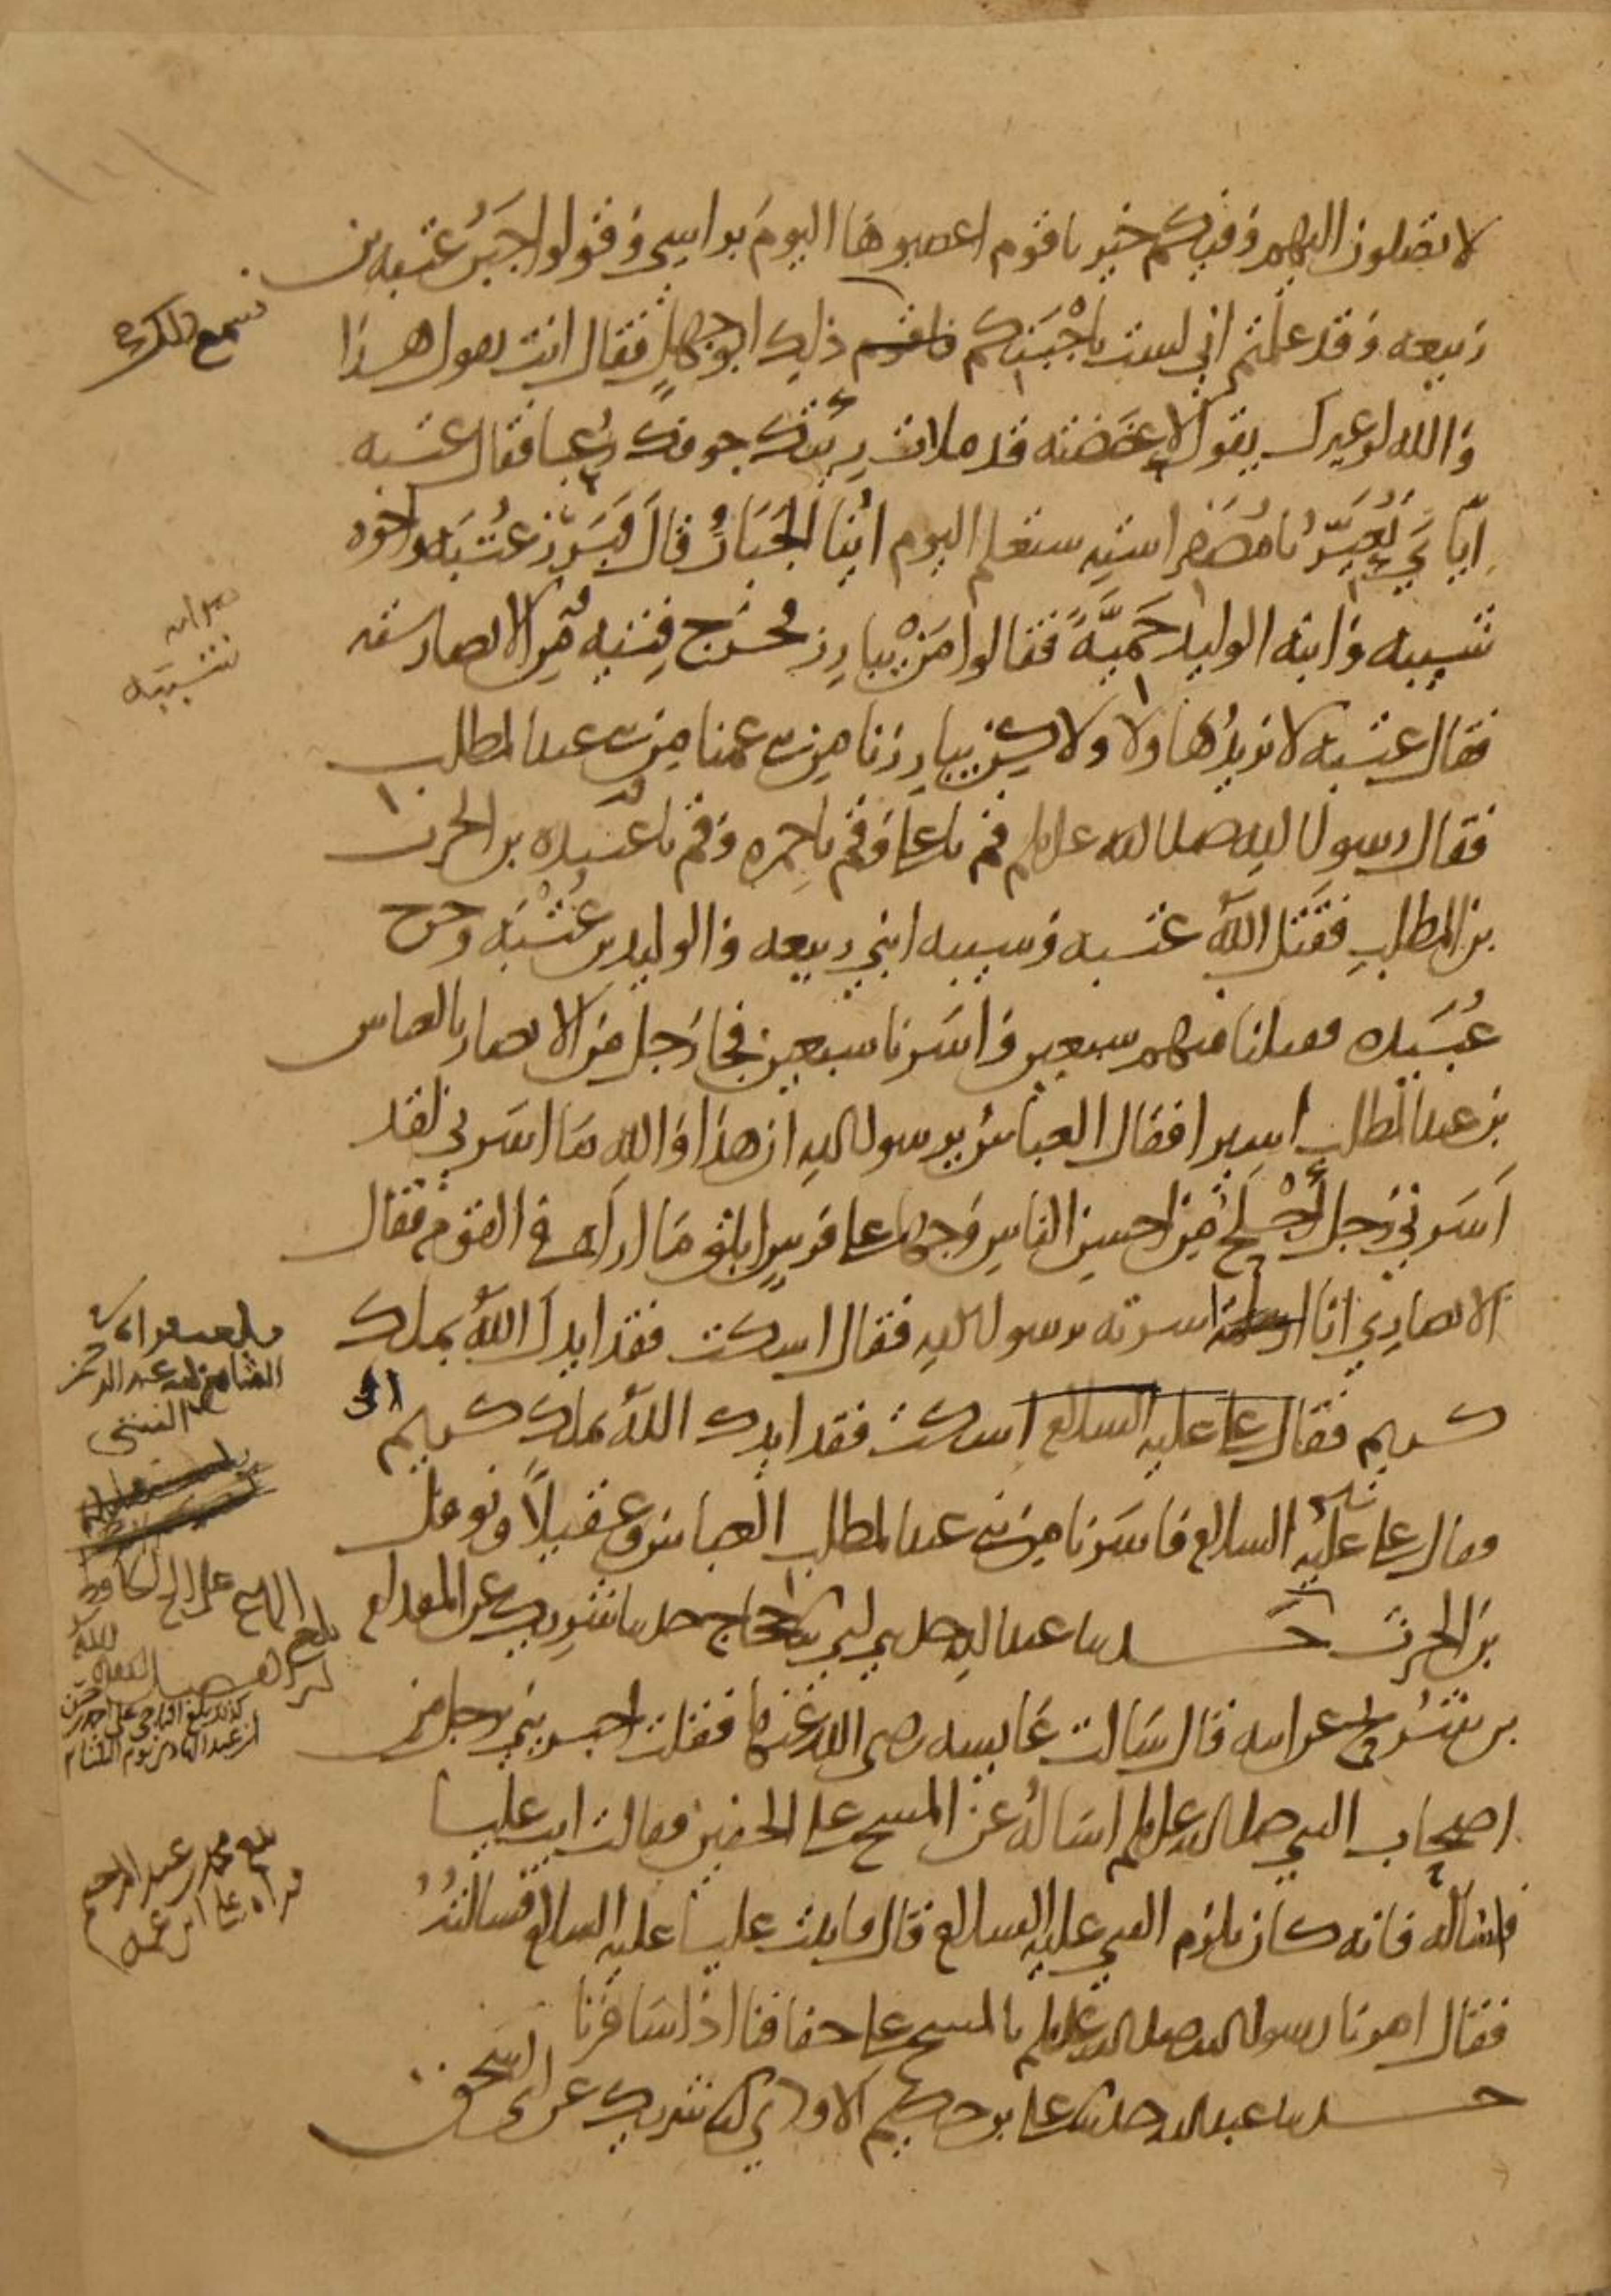 لا تصلون اليهم وفيكم خير يا قوم اعصبوها اليوم براسي وقولوا جبن عتبه بن
ربيعه وقد علمتم اني لست باجبنكم ذلك ابو جهل فقال انت تقول هذا
والله لو غيرك يقول لاعضضته قد ملات رئتك جوفك رعبا فقال عتبه
اياي تعير يا مصفر استه ستعلم اليوم اينا الجبان قال فبرز عتبه واخوه
شيبه وابنه الوليد حمية فقالوا من يبارز فخرج فتيه من الانصار سته
فقال عتبه لا نريد هاولا ولكن يبارزنا من بني عمنا من بني عبد المطلب
فقال رسول الله صلى الله عليه وسلم قم يا علي وقم يا حمزه وقم يا عبيده بن الحرث
بن المطلب فقتل الله عتبه وشيبه ابني ربيعه والوليد بن عتبه وجرح
عبيده فقتلنا منهم سبعين واسرنا سبعين فجا رجل من الانصار بالعباس
بن عبد المطلب اسيرا فقال العباس يرسول الله ان هذا والله ما اسرني لقد
اسرني رجل اجلح من احسن الناس وجها على فرس ابلق ما اراه في القوم فقال
الانصاري انا اسرته يرسول الله فقال اسكت فقد ايدك الله بملك
كريم فقال علي عليه السلام اسكت فقد ايدك الله بملك كريم
فقال علي عليه السلام فاسرنا من بني عبد المطلب العباس وعقيلا ونوفل
بن الحرث حدثنا عبد الله حدثني ابي ثنا حجاج حدثنا شريك عن المقدام
بن شريح عن ابيه قال سالت عايشه رضي الله عنها فقلت اخبريني برجل من
اصحاب النبي صلى الله عليه وسلم اساله عن المسح على الخفين فقالت ايت عليا
فاساله فانه كان يلزم النبي عليه السلام قال فاتيت عليا عليه السلام فسالته
فقال امرنا رسول الله صلى الله عليه وسلم بالمسح على خفافنا اذا سافرنا
حدثنا عبد الله حدثنا علي بن حكيم الاودي انا شريك عن ابي اسحق
فسمع ذلك
صوابه
شيبه
بلغ محمد بن عبد الرحيم